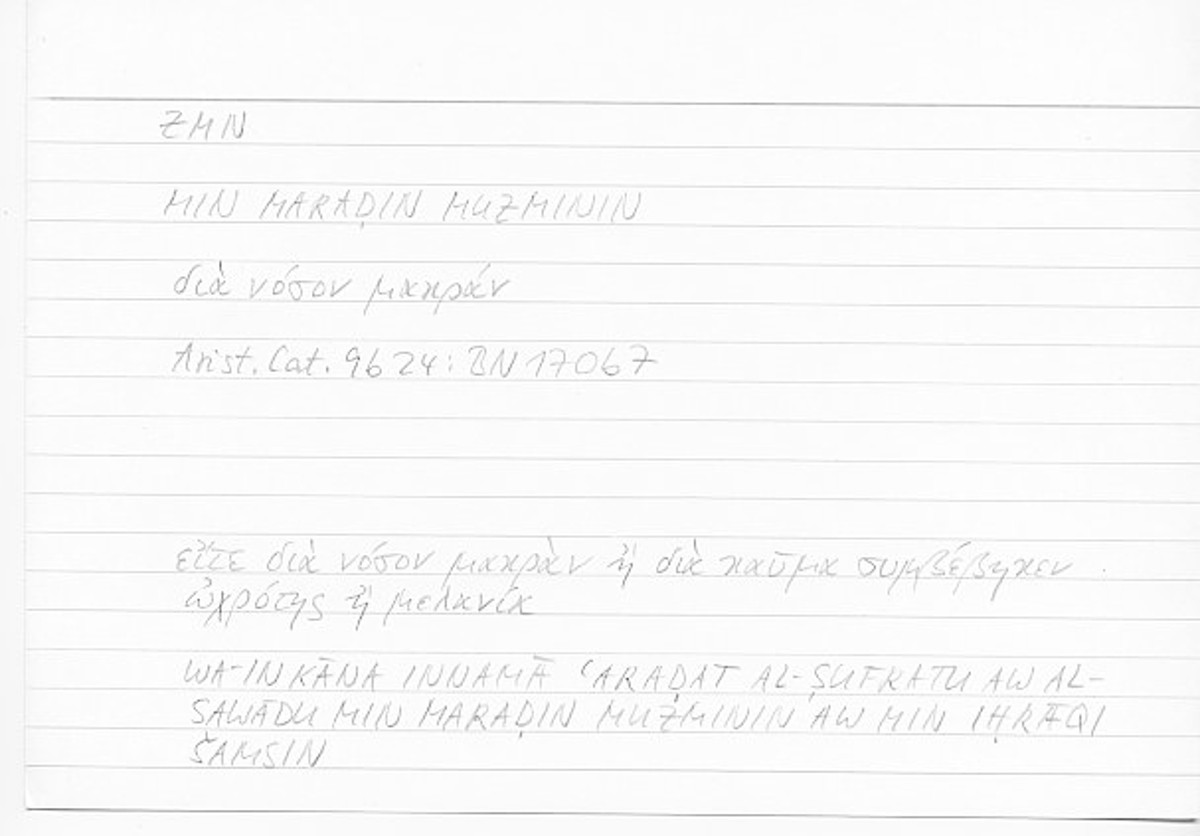 ZMN
MIN MARAḌIN MUZMININ
διὰ νόσον μακράν
Arist. Cat. 9b 24 : BN 170b 7
εἴτε διὰ νόσον μακρὰν ἢ διὰ καῦμα συμβέβηκεν
ὠχρότης ἢ μελανία
WA-IN KĀNA INNAMĀ ʿARAḌAT AL-ṢUFRATU AW AL-
SAWĀDU MIN MARAḌIN MUZMININ AW MIN IḤRĀQI
ŠAMSIN